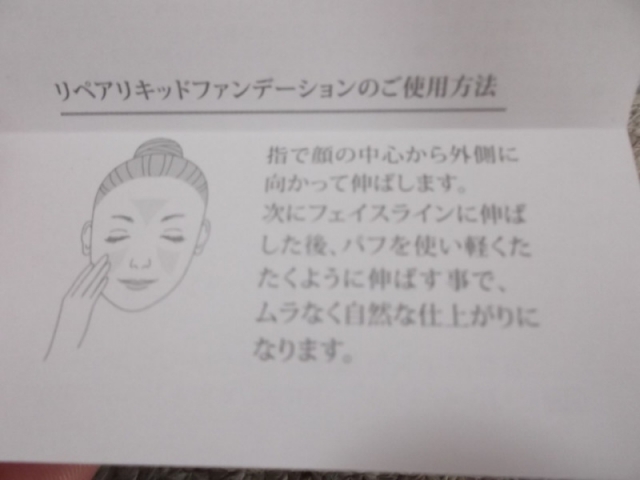 リペアリキッドファンデーションのご使用方法
指で顔の中心から外側に
向かって伸ばします。
次にフェイスラインに伸ば
した後、パフを使い軽くた
たくように伸ばす事で、
ムラなく自然な仕上がりに
なります。